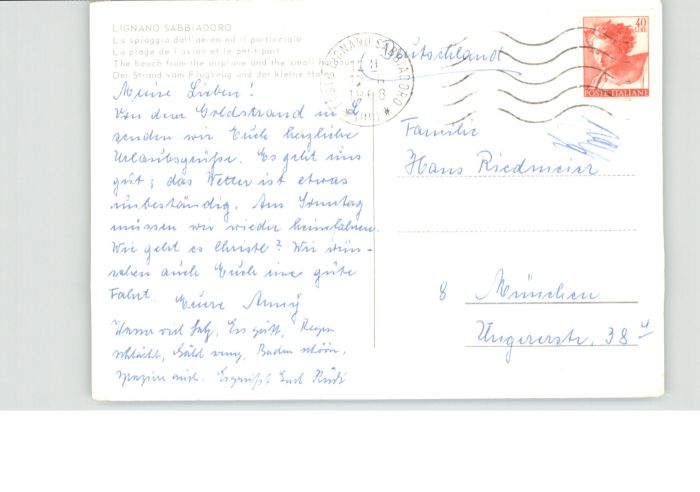 LIGNANO SABBIADORO
La spiaggia dall'aereo ed il porticciolo
La plage de l'avion et le petit port
The beach from the airplane and the small harbour
Der Strand vom Flugzeug und der kleine Hafen
Meine Lieben!
Von dem Goldstrand in L.
senden wir Euch herzliche
Urlaubsgrüße. Es geht uns
gut; das Wetter ist etwas
unbeständig. Am Sonntag
müssen wir wieder heimfahren.
Wie geht es Christl? Wir wün-
schen auch Euch eine gute
Fahrt. Eure Anny
Wasser viel Salz, Ess gut, Regen
schlecht, Gäld weng, Baden schön,
auch. Es grüßt Euch Rudi
LIGNANO SABBIADORO
Deutschland
40
LIRE
POSTE ITALIANE
Familie
Hans Riedmeier
8 München
Ungererstr. 38